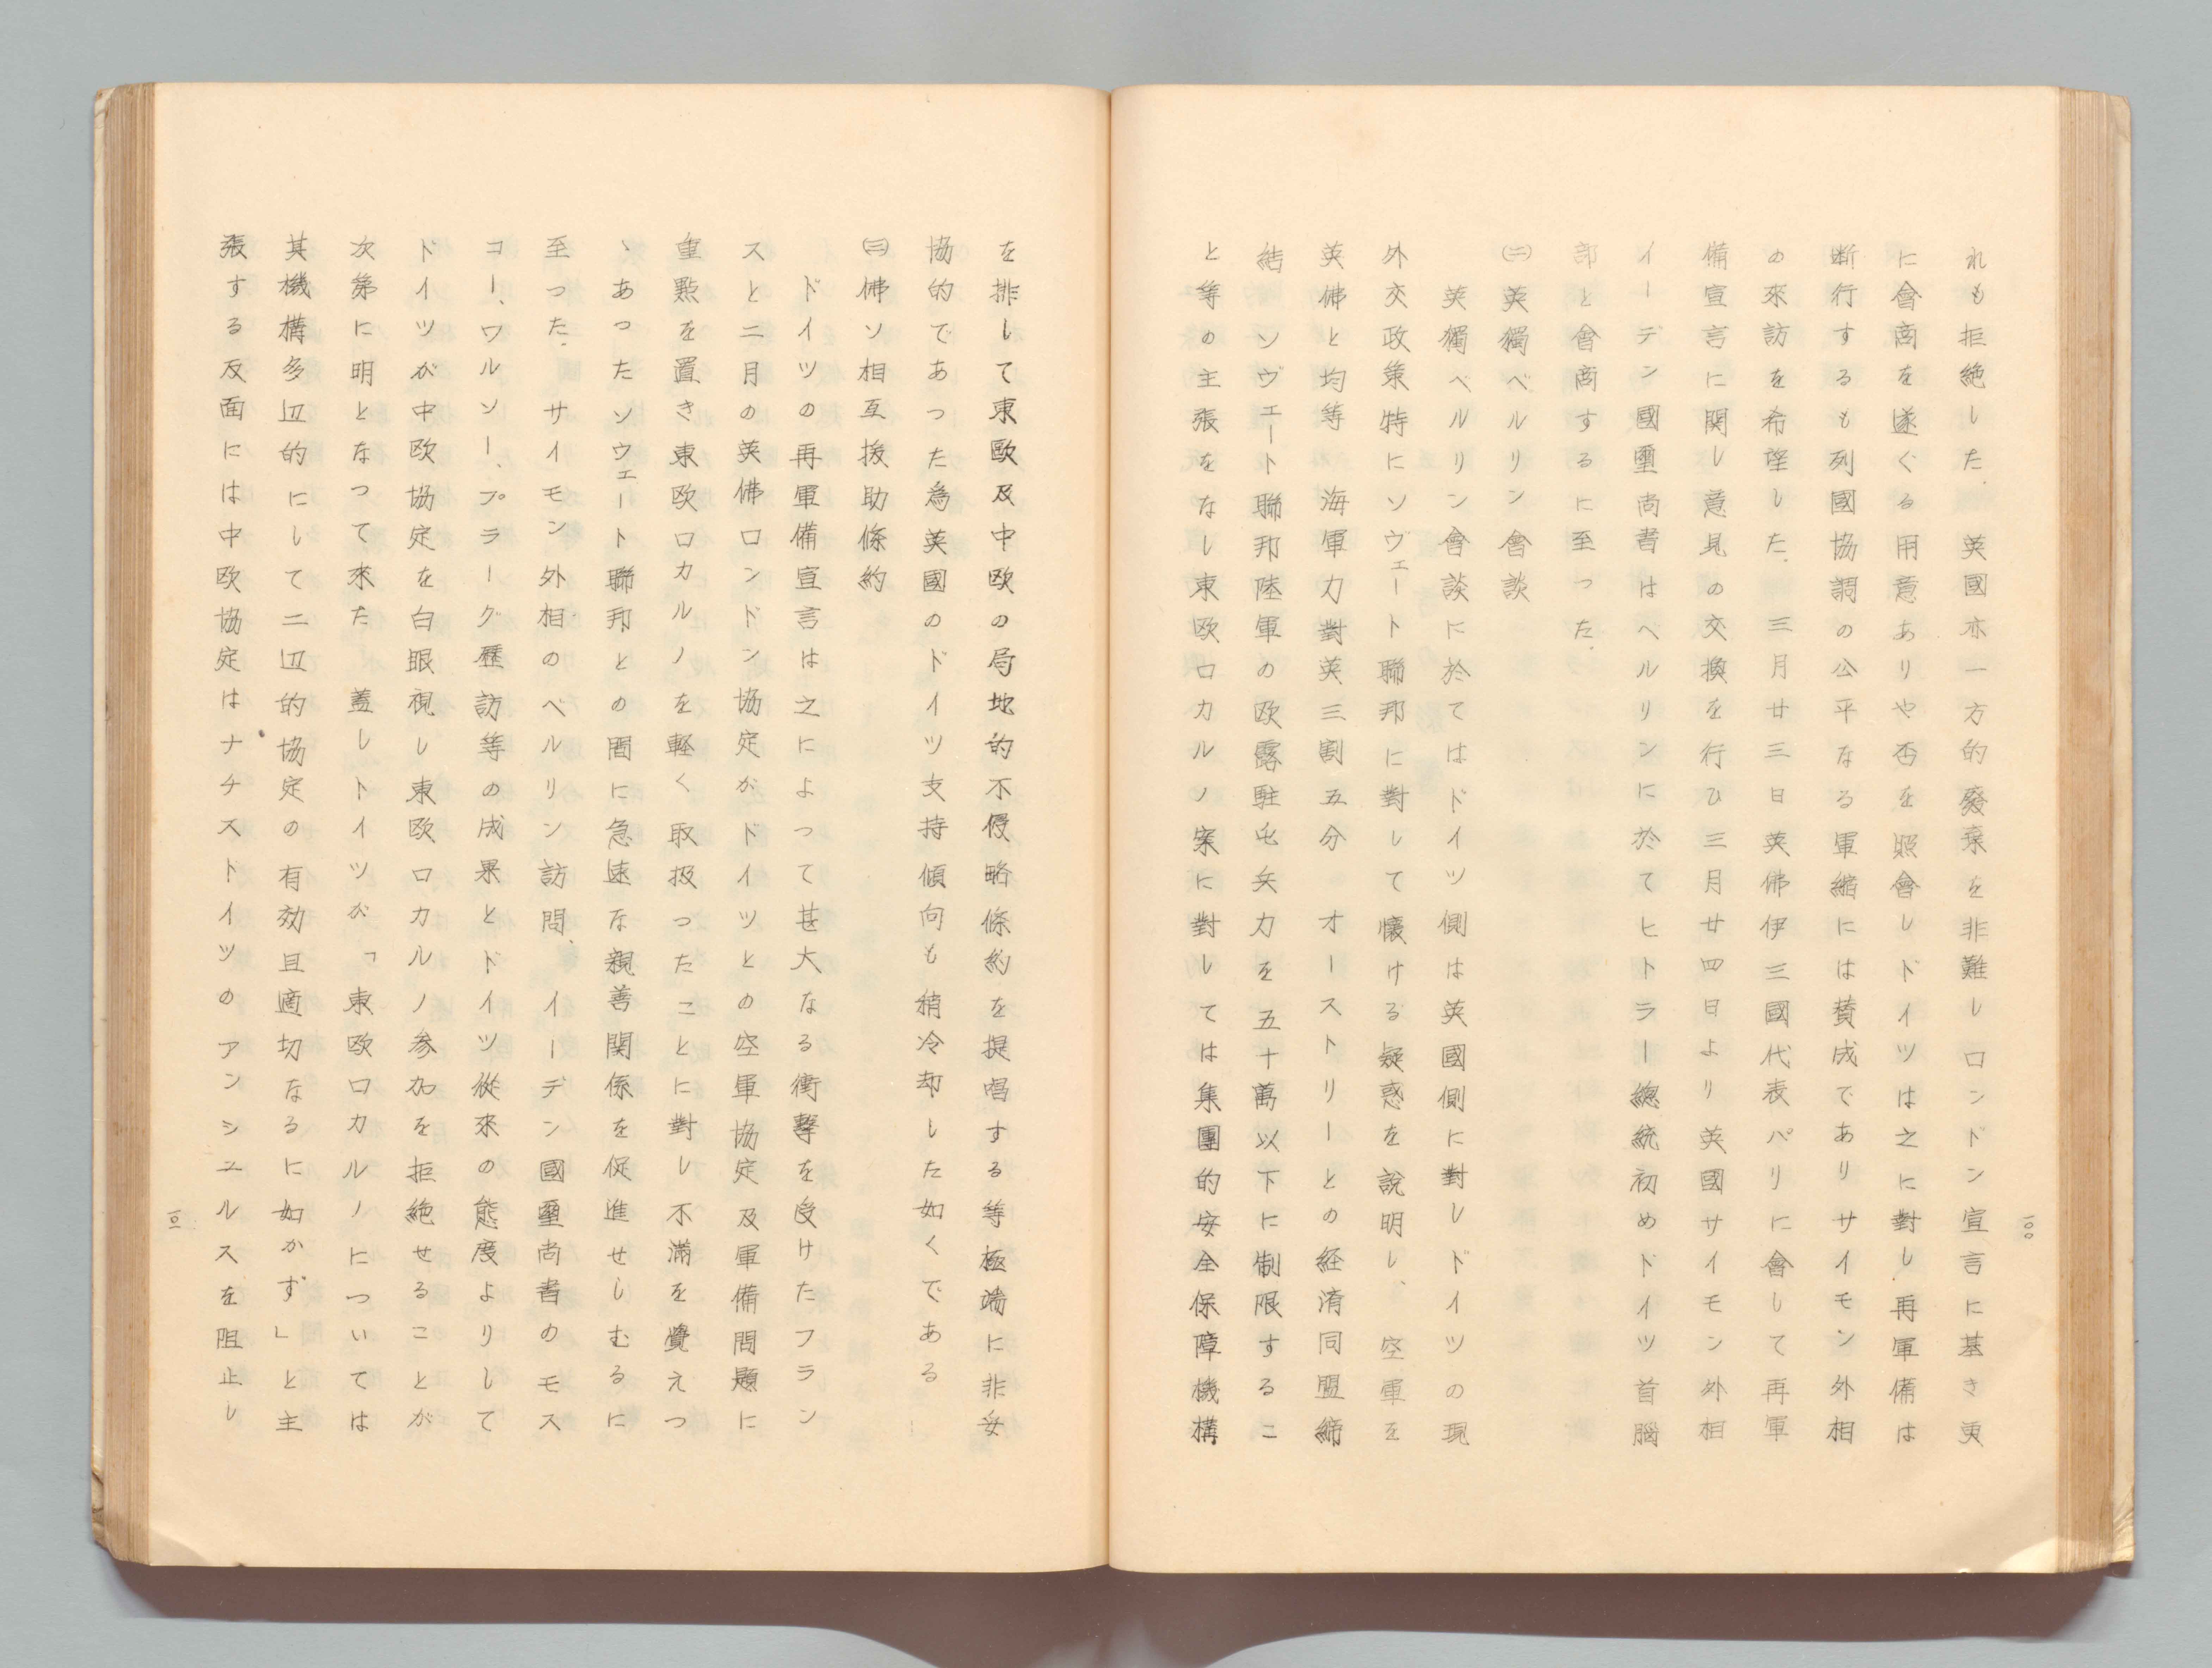 れも拒絶した. 英國亦一方的廢棄を非難しロンドン宣言に基き更
に會商を遂ぐる用意ありや否を照會しドイツは之に對し、再軍備は
断行するも列國協調の公平なる軍縮には賛成でありサイモン外相
の來訪を希望した. 三月廿三日英佛伊三國代表パリに會して再軍
備宣言に関し意見の交換を行ひ三月廿四日より英國サイモン外相
イーデン國璽尚書はベルリンに於てヒトラー總統初めドイツ首腦
部と會商するに至った.
㈡ 英獨ベルリン會談
英獨ベルリン會談に於てはドイツ側は英國側に對しドイツの現
外交政策特にソヴェート聯邦に對して懐ける疑惑を說明し、空軍を
英佛と均等 海軍力對英三割五分 オーストリーとの経済同盟締
結 ソヴェート聯邦陸軍の欧露駐屯兵力を五十萬以下に制限するこ
と等の主張をなし東欧ロカルノ案に對しては集團的安全保障機構
一〇〇
を排して東歐及中欧の局地的不侵略條約を提唱する等極端に非妥
協的であった為英國のドイツ支持傾向も稍冷却した如くである
㈢ 佛ソ相互援助條約
ドイツの再軍備宣言は之によって甚大なる衝擊を受けたフラン
スと二月の英佛ロンドン協定がドイツとの空軍協定及軍備問題に
重點を置き東欧ロカルノを軽く取扱ったことに對し不滿を覺えつ
ゝあったソウェート聯邦との間に急速な親善関係を促進せしむるに
至った. サイモン外相のベルリン訪問、イーデン國璽尚書のモス
コー、ワルソー、プラーグ歷訪等の成果とドイツ從來の態度よりして
ドイツが中欧協定を白眼視し東欧ロカルノ参加を拒絶せることが
次第に明となって來た 蓋しドイツが「東欧ロカルノについては
其機構多辺的にして二辺的協定の有効且適切なるに如かず」と主
張する反面には中欧協定はナチスドイツのアンシュルスを阻止し
一〇一